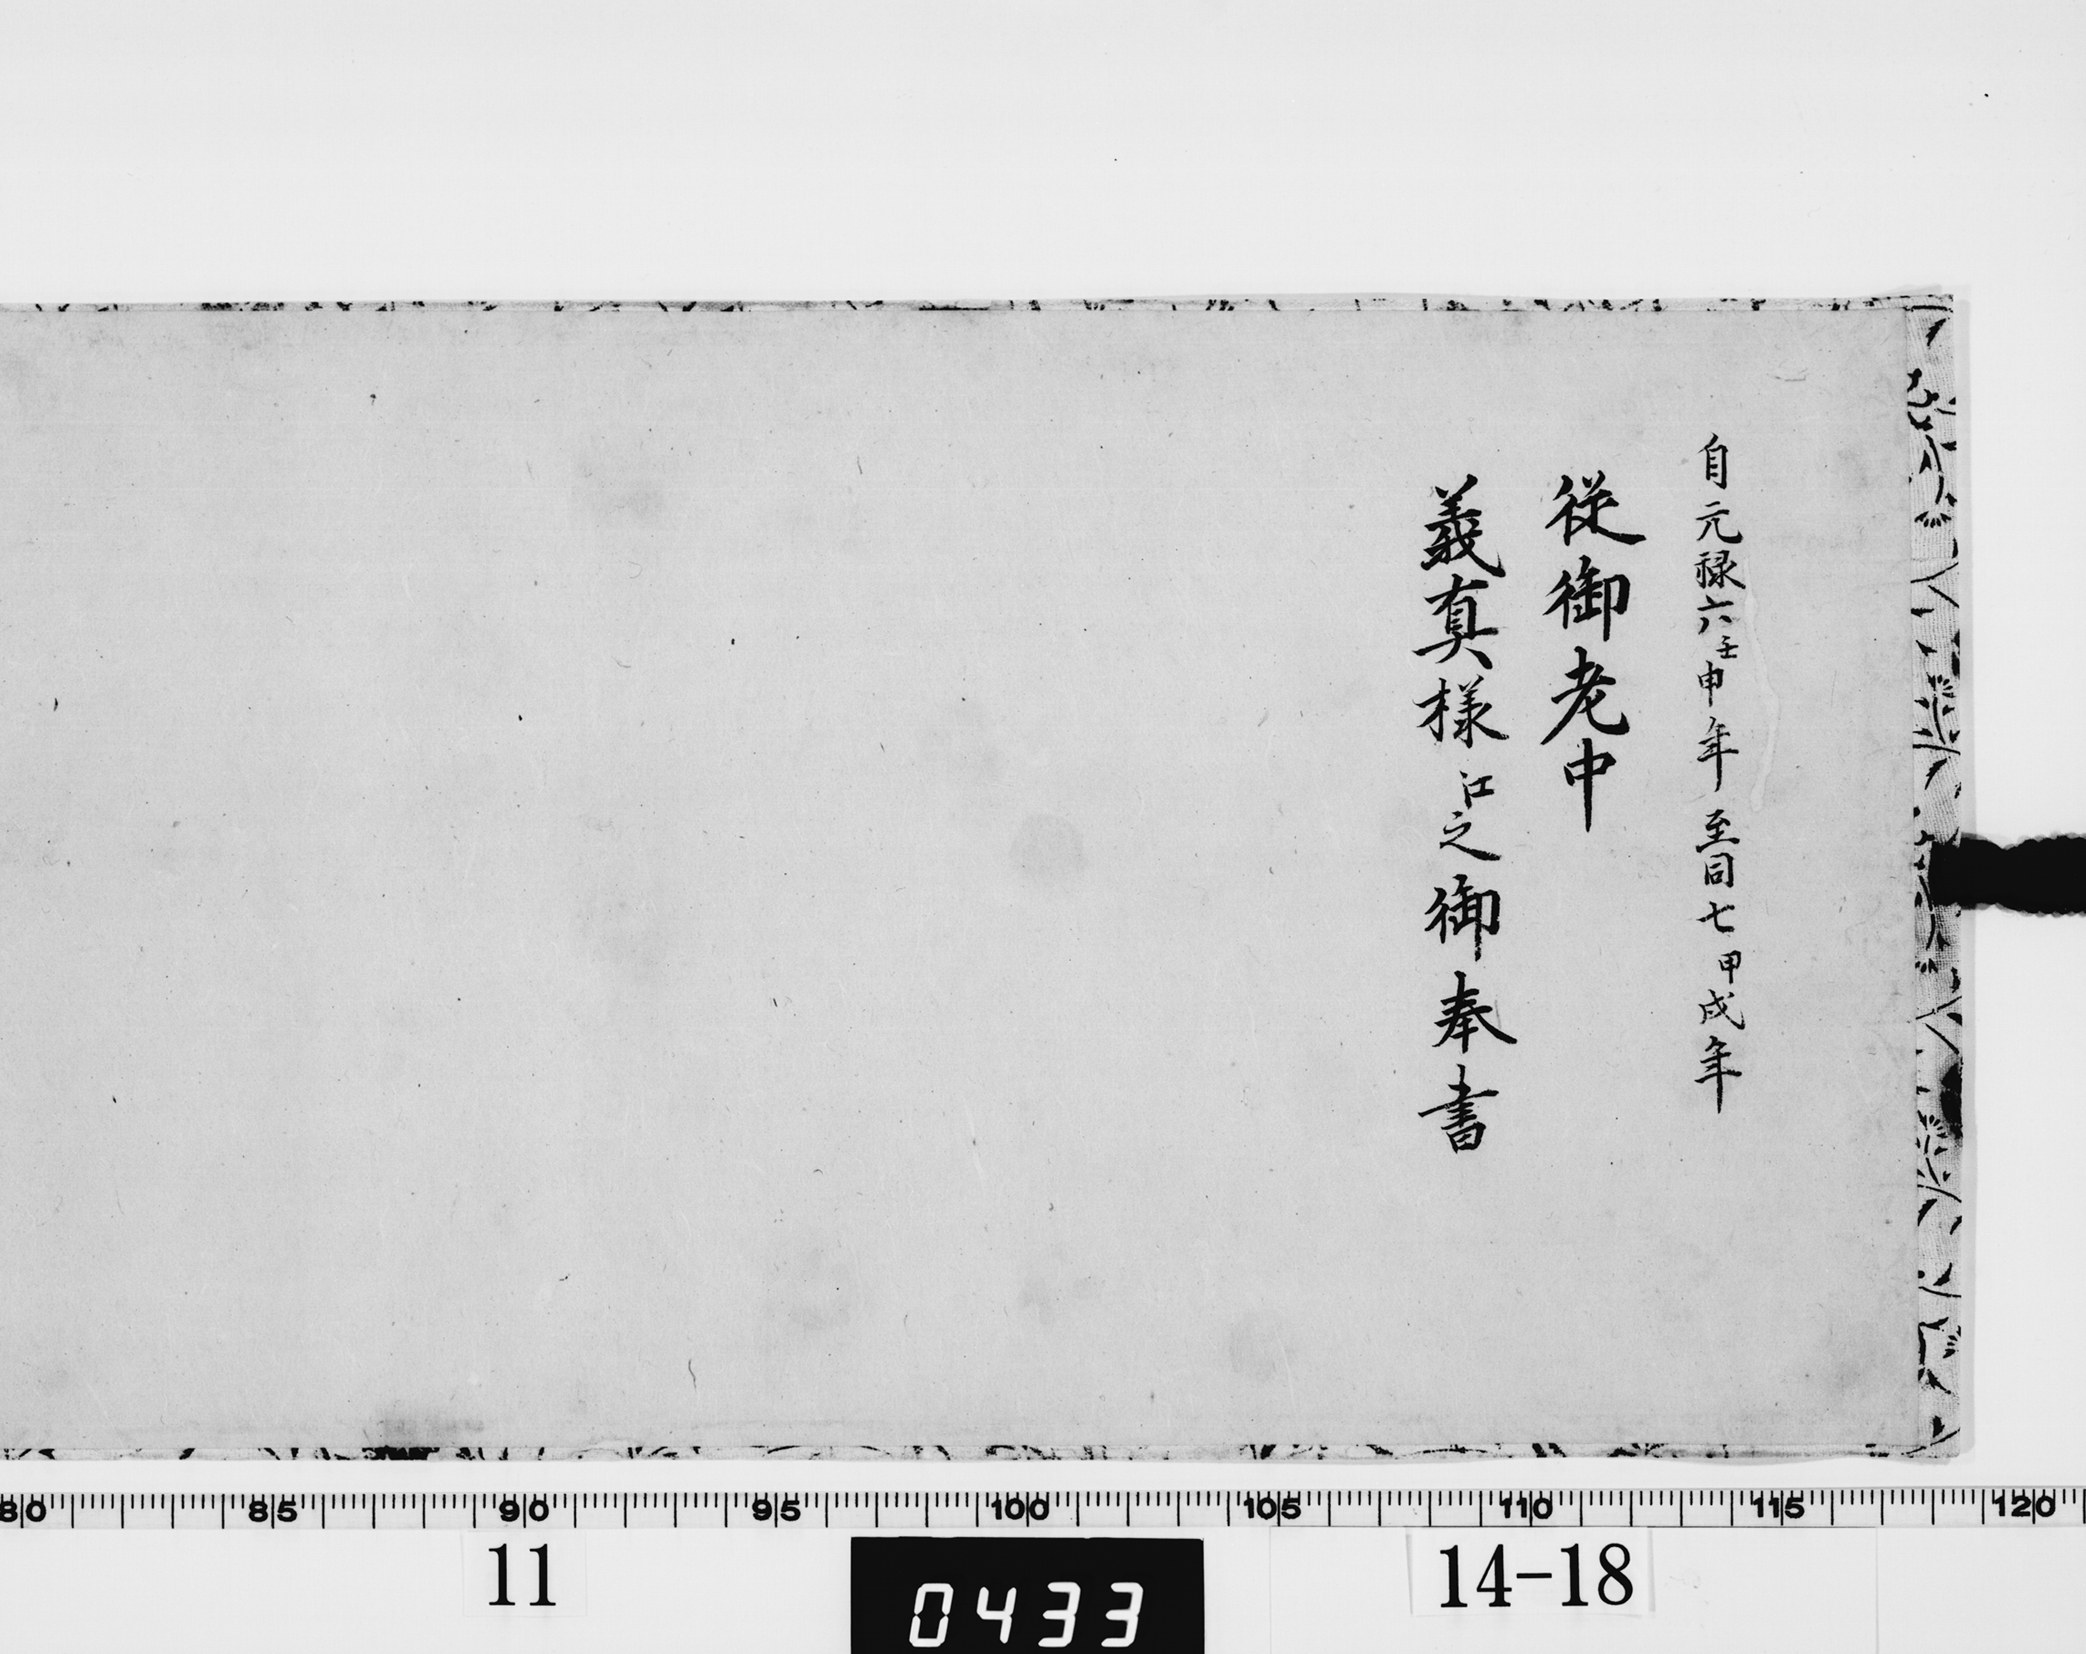 自元禄六壬申年至同七甲戌年
従御老中
義真様江之御奉書
80 85 90 95 100 105 110 115 120
11
0433
14-18